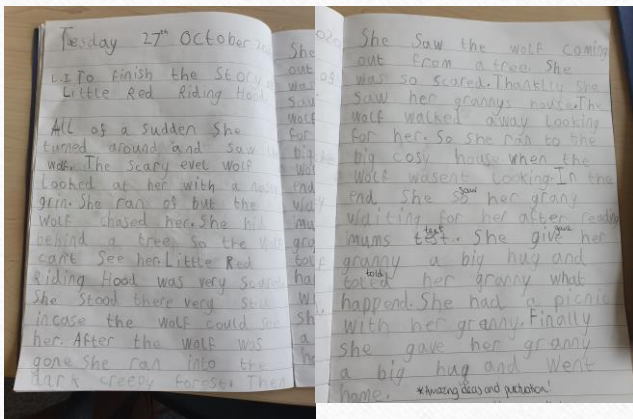 Tuesday 27th October
L.I To finish the Story
Little Red Riding Hood.
All of a sudden She
turned around and saw
wolf. The scary evel wolf
Looked at her with a
grin. She ran of but the
wolf chased her. She hid
behind a tree. So the wolf
can't See her. Little Red
Riding Hood was very scared.
She Stood there very still
incase the wolf could see
her. After the wolf was
gone She ran into the
dark creepy Forest. Then
She Saw the wolf coming
out from a tree. She
was so scared. Thanklly she
saw her grannys house. The
Wolf walked away Looking
for her. So she ran to the
big cosy house when the
wolf wasent Looking. In the
end She so saw her grany
waiting for her after reading
mums text. She give gave her
granny a big hug and
told her granny what
happend. She had a picnic
with her granny. Finally
she gave her granny
a big hug and went
home. *Amazing ideas and puctuation!